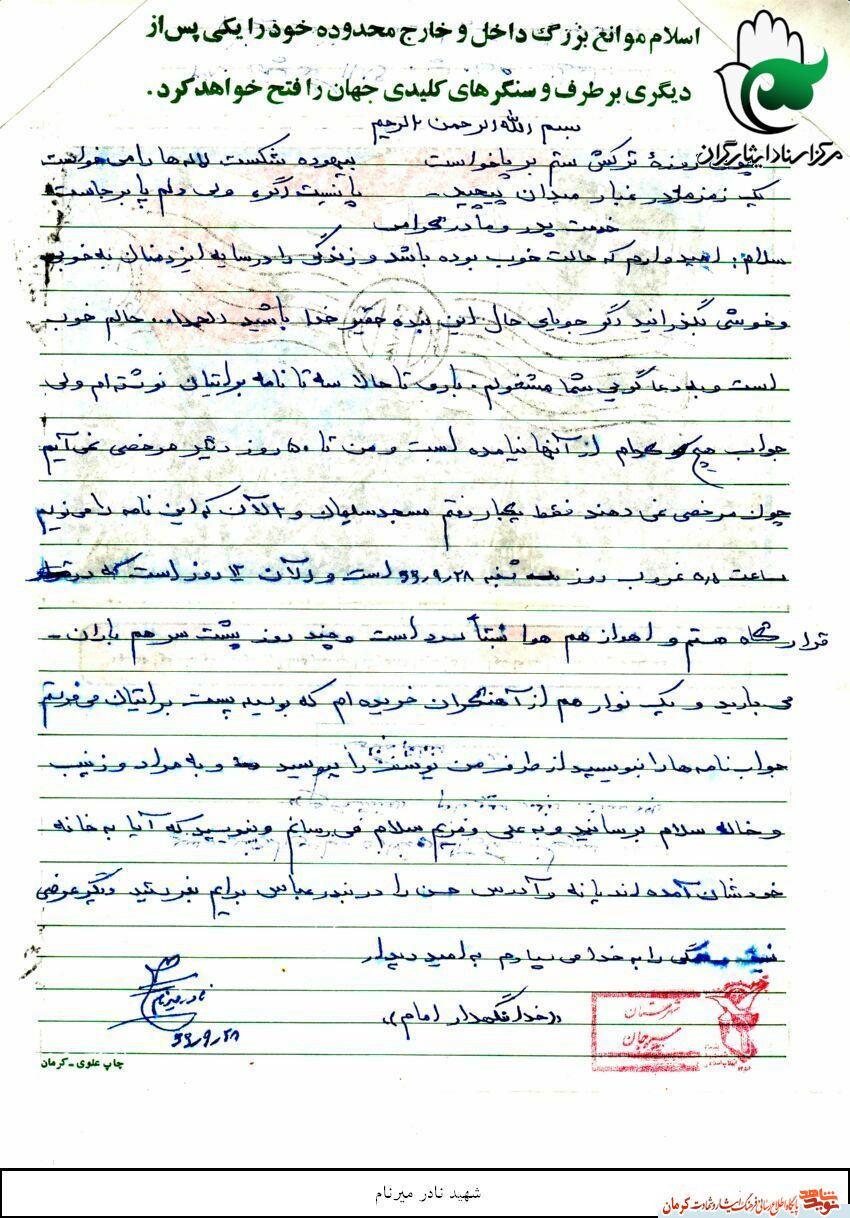 اسلام موانع بزرگ داخل و خارج محدوده خود را یکی پس از
دیگری بر طرف و سنگرهای کلیدی جهان را فتح خواهد کرد.
مرکز اسناد ایثارگران
بسم الله الرحمن الرحیم
چون روزهٔ ترکش ستم بر پا خواست بیهوده شکست لاله ها را می خواست
یک زمزمه در غبار میدان پیچید - پا نیست اگر، ولی دلم پا برجاست
خدمت پدر و مادر گرامی
سلام: امیدوارم که حالت خوب بوده باشد و زندگی را در سایه ایزد منان به خوبی
و خوشی بگذرانید اگر جویای حال این بنده حقیر خدا باشید الحمدا... حالم خوب
است و به دعا گویی شما مشغولم. باری تا حالا سه تا نامه برایتان نوشته ام ولی
جواب هیچ کدام از آنها نیامده است و من تا ۵۰ روز دیگر مرخصی نمی آیم
چون مرخصی نمی دهند فقط یکبار رفتم مسجد سلیمان و الآن که این نامه را می نویسم
ساعت ۵٫۵ غروب روز شنبه ۶۶٫۹٫۲۸ است و الآن ۱۳ روز است که در
قرارگاه هستم و اهواز هم هوا نسبتاً سرد است و چند روز پشت سر هم باران -
می بارید و یک نوار هم از آهنگران خریده ام که بوسیه پست برایتان می فرستم
جواب نامه ها را بنویسید از طرف من یوسف را ببوسید و به مراد و زینب
و خاله سلام برسانید و به علی و مریم سلام می رسانم و بنویسید که آیا به خانه
خودشان آمده اند یا نه و آدرس حسن را در بندر عباس برایم بفرستید دیگر عرضی
نیست و همگی را به خدا می سپارم به امید دیدار
((خدا نگهدار امام))
نادر میرنام
۶۶٫۹٫۲۸
شهرستان
سیرجان
چاپ علوی - کرمان
شهید نادر میرنام
نوید شاهد
پایگاه اطلاع رسانی فرهنگ ایثار و شهادت کرمان